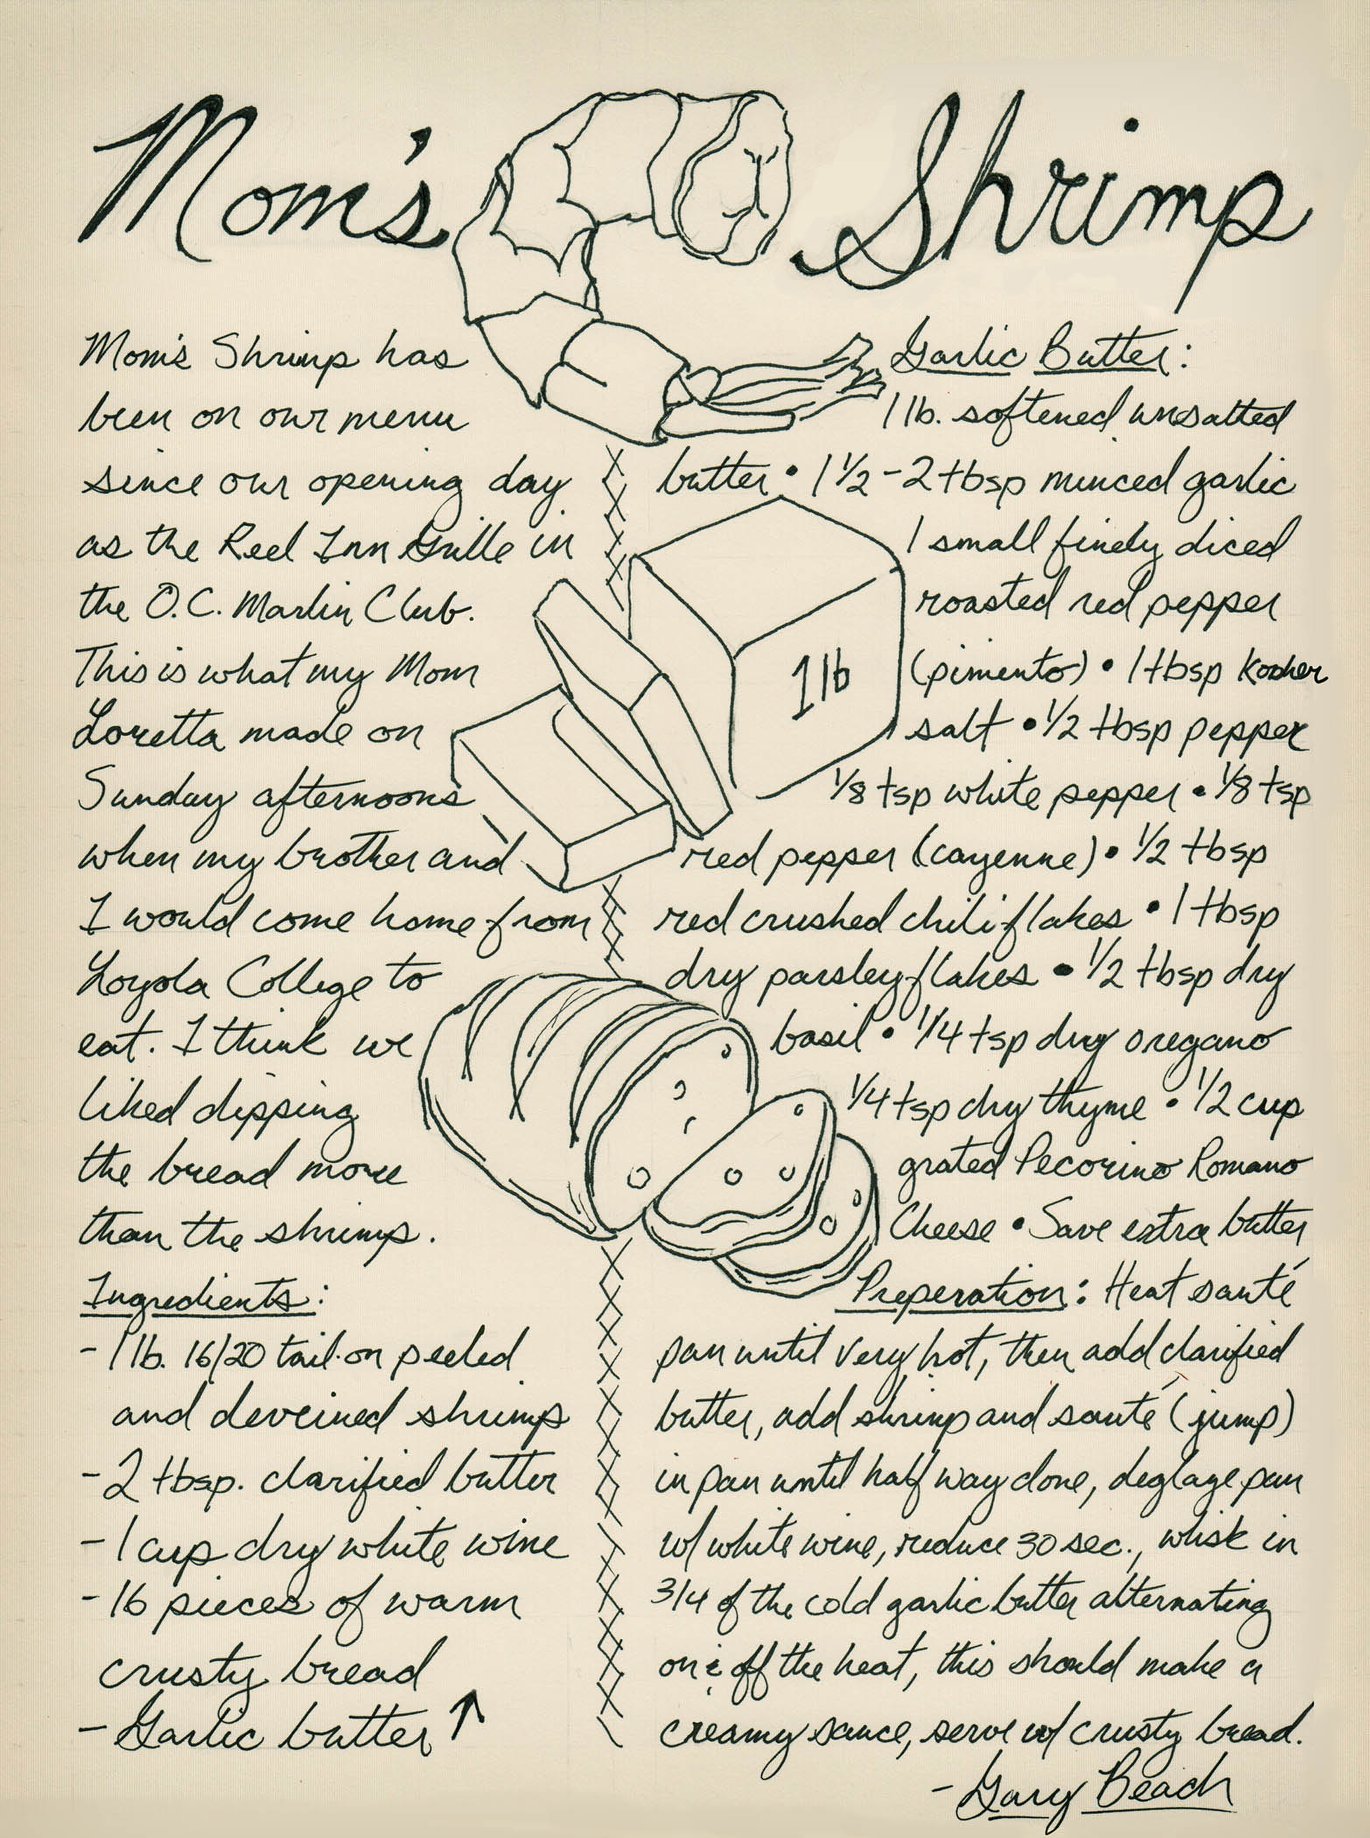 Mom's Shrimp
Mom's Shrimp has
been on our menu
since our opening day
as the Reel Inn Grille in
the O.C. Marlin Club.
This is what my Mom
Loretta made on
Sunday afternoons
when my brother and
I would come home from
Loyola College to
eat. I think we
liked dipping
the bread more
than the shrimp.
Ingredients:
- 1 lb. 16/20 tail-on peeled
and deveined shrimp
- 2 tbsp. clarified butter
- 1 cup dry white wine
- 16 pieces of warm
crusty bread
- Garlic butter ↑
Garlic Butter:
1 lb. softened unsalted
butter • 1 1/2 - 2 tbsp minced garlic
1 small finely diced
roasted red pepper
(pimento) • 1 tbsp kosher
salt • 1/2 tbsp pepper
1/8 tsp white pepper • 1/8 tsp
red pepper (cayenne) • 1/2 tbsp
red crushed chili flakes • 1 tbsp
dry parsley flakes • 1/2 tbsp dry
basil • 1/4 tsp dry oregano
1/4 tsp dry thyme • 1/2 cup
grated Pecorino Romano
Cheese • Save extra butter
Preperation: Heat sauté
pan until very hot, then add clarified
butter, add shrimp and sauté (jump)
in pan until half way done, deglage pan
w/ white wine, reduce 30 sec., whisk in
3/4 of the cold garlic butter alternating
on & off the heat, this should make a
creamy sauce, serve w/ crusty bread.
- Gary Beach
1 lb